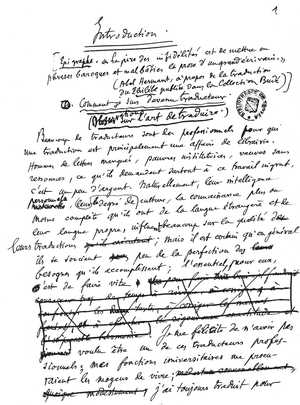 1
Introduction.
Epigraphe : « la pire des infidélités est de mettre en
phrases baroques et malbâties la prose d'un grand écrivain »,
(Abel Hermant, à propos de la traduction
du publiée dans la Collection Budé)
Comment je suis devenu traducteur
(Observations sur l'art de traduire).
Beaucoup de traducteurs sont des professionnels pour qui
une traduction est principalement une affaire de
Hommes de lettres manqués, pauvres instituteurs, veuves sans
ressources, ce qu'ils demandent surtout à ce travail ingrat,
c'est un peu d'argent. Naturellement, leur intelligence
personnelle, leur degré de culture, la connaissance plus ou
moins complète qu'ils ont de la langue étrangère et de
leur langue propre, influe beaucoup sur la qualité de
leurs traductions mais il est certain qu'en général
ils se soucient peu de la perfection des
besogne qu'ils accomplissent ; l'essentiel, pour eux,
c'est de faire vite.
Je me félicite de n'avoir pas
voulu être un de ces traducteurs profes-
sionnels ; mes fonctions universitaires me procu-
raient les moyens de vivre ;
j'ai toujours traduit pour